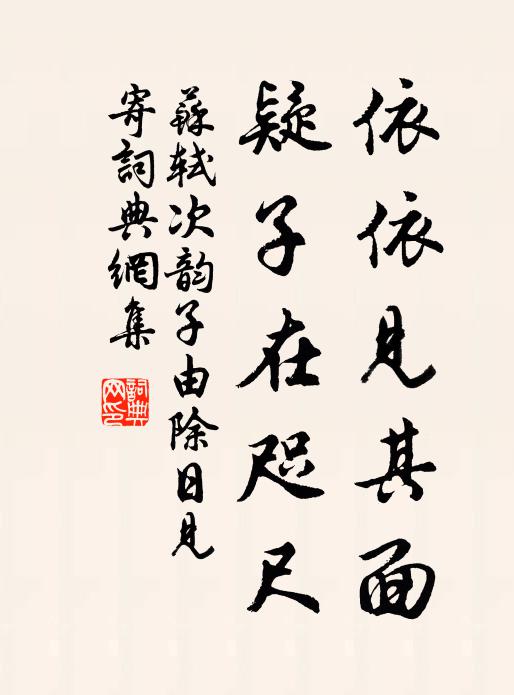 依依見其面
疑子在咫尺
蘇軾次韵子由除日見
寄詞典網集
詞典
网印